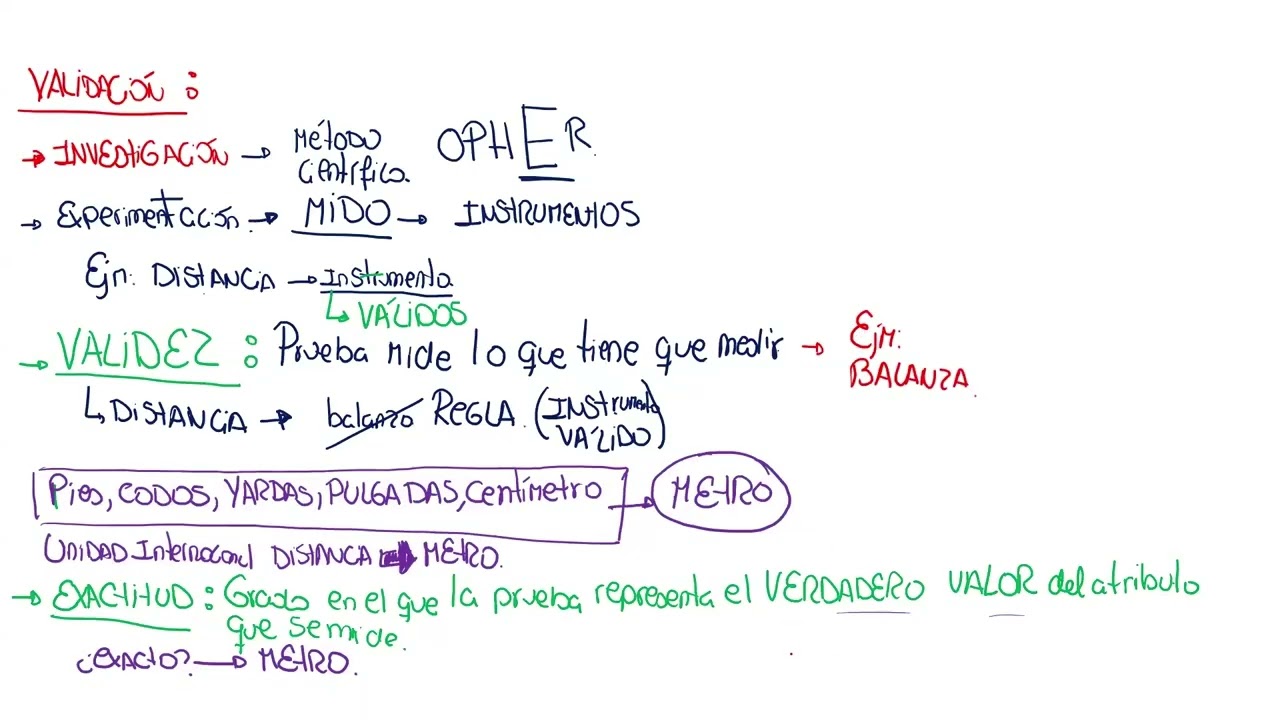 VALIDACIÓN :
→ INVESTIGACIÓN → MÉTODO Científico. OPHER.
→ Experimentación. → MIDO → INSTRUMENTOS
Ejm: DISTANCIA → Instrumento
↳ VÁLIDOS
→ VALIDEZ : Prueba mide lo que tiene que medir → EjM: BALANZA
↳ DISTANCIA → balanza REGLA. (INSTrumento VÁLIDO)
Pies, CODOS, YARDAS, PULGADAS, Centímetro → METRO
UNIDAD Internacional DISTANCIA → METRO.
→ EXACTITUD : Grado en el que la prueba representa el VERDADERO VALOR del atributo
que se mide.
¿EXACTO? → METRO.